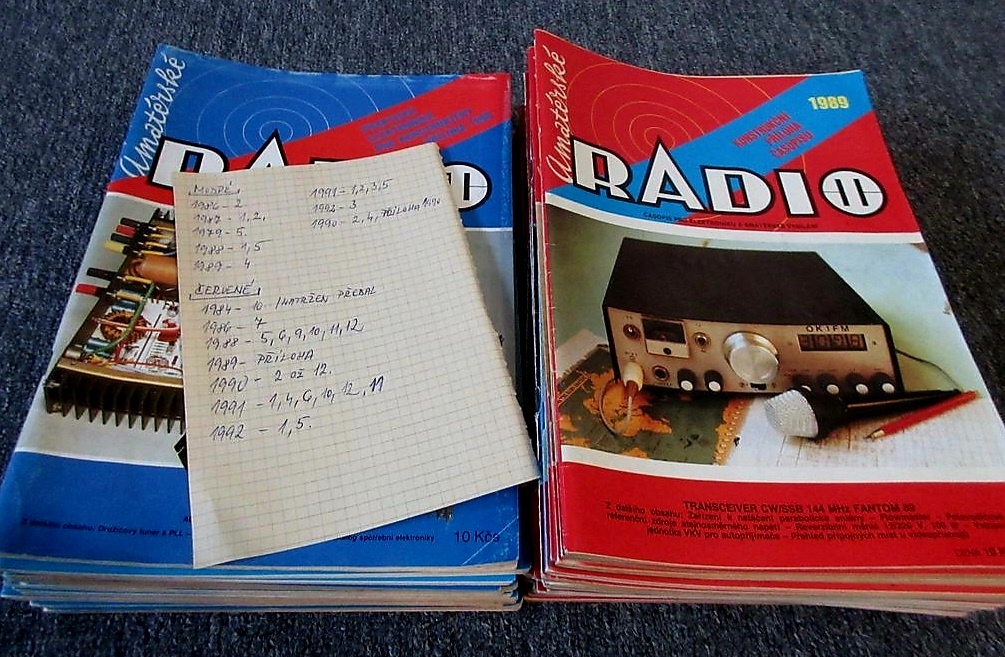 Amatérské
RADIO
10 Kčs
MODRÉ
1986 - 2
1987 - 1, 2,
1979 - 5.
1988 - 1, 5
1989 - 4
1991 - 1, 2, 3, 5
1992 - 3
1990 - 2, 4, PŘÍLOHA 1990
ČERVENÉ
1984 - 10 - /NATRŽEN PŘEBAL
1986 - 7
1988 - 5, 6, 9, 10, 11, 12
1989 - PŘÍLOHA
1990 - 2 až 12.
1991 - 1, 4, 6, 10, 12, 11
1992 - 1, 5.
Amatérské
1989
KONSTRUKČNÍ
PŘÍLOHA
ČASOPISU
RADIO
ČASOPIS PRO ELEKTRONIKU A AMATÉRSKÉ VYSÍLÁNÍ
OK1FM
TRANSCEIVER CW/SSB 144 MHz FANTOM 89
Z dalšího obsahu: Zařízení k natáčení parabolické antény
jednotka VKV pro autopřijímače – Přehled přípojných míst u videopřístrojů